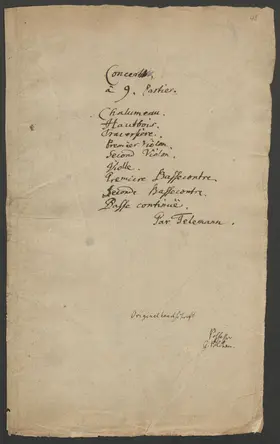 Concerto
à 9. Parties.
Chalumeau.
Hautbois.
Traversière.
Premier Violon.
Second Violon.
Violle.
Première Bassecontre.
Seconde Bassecontre.
Basse continuë.
Par Telemann.
Originalhandschrift